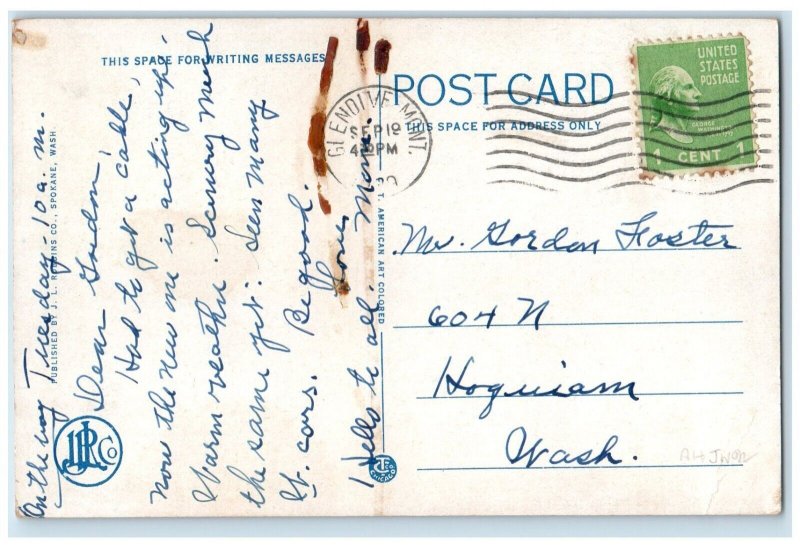 THIS SPACE FOR WRITING MESSAGES
POST CARD
THIS SPACE FOR ADDRESS ONLY
UNITED
STATES
POSTAGE
GEORGE WASHINGTON
1 CENT 1
GLENDIVE, MONT.
SEP 19
4 PM
On the way Tuesday - 10 a.m.
Dear Gordon,
Had to get a cable,
now the new one is acting up.
Warm weather. Scenery much
the same yet. Seen many
W. cars. Be good.
Love,
Mom.
Hello to all.
Mr. Gordon Foster
604 N
Hoquiam
Wash.
PUBLISHED BY J. L. ROBBINS CO., SPOKANE, WASH.
C. T. AMERICAN ART COLORED
JLR Co
CHICAGO